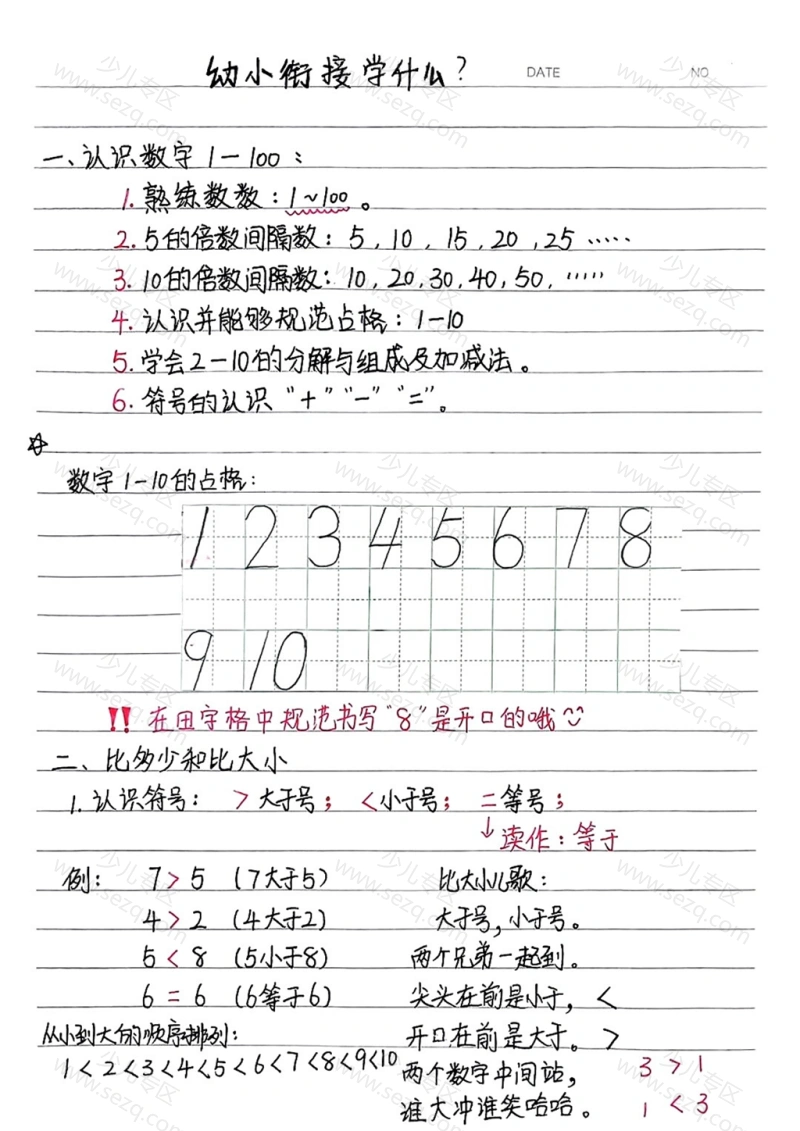 幼小衔接学什么?
DATE
NO
一、认识数字1—100:
1. 熟练数数:1~100。
2. 5的倍数间隔数:5,10,15,20,25……
3. 10的倍数间隔数:10,20,30,40,50,……
4. 认识并能够规范占格:1—10
5. 学会2—10的分解与组成及加减法。
6. 符号的认识“+”“-”“=”。
数字1-10的占格:
1 2 3 4 5 6 7 8
9 10
!! 在田字格中规范书写“8”是开口的哦
二、比多少和比大小
1. 认识符号: > 大于号; < 小于号; = 等号;
↓读作:等于
例: 7 > 5 (7大于5)
4 > 2 (4大于2)
5 < 8 (5小于8)
6 = 6 (6等于6)
从小到大的顺序排列:
1<2<3<4<5<6<7<8<9<10
比大小儿歌:
大于号,小于号。
两个兄弟一起到。
尖头在前是小于, <
开口在前是大于。 >
两个数字中间站, 3 > 1
谁大冲谁笑哈哈。 1 < 3
少儿专区
www.sezq.com